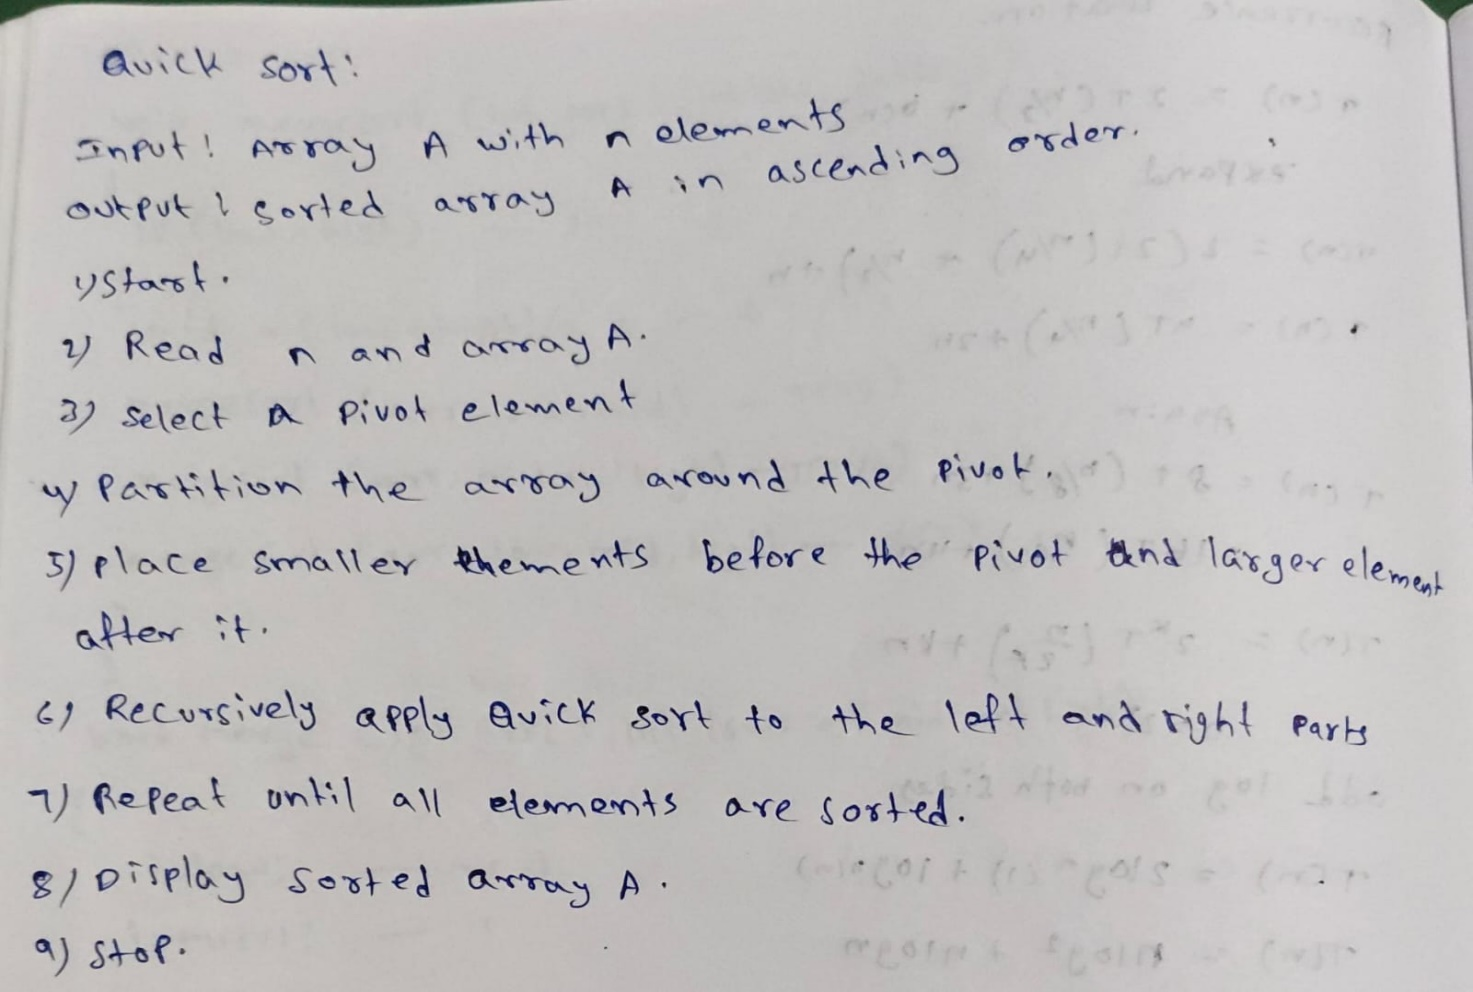 Quick sort:
Input: Array A with n elements
Output: Sorted array A in ascending order.
1) Start.
2) Read n and array A.
3) Select a pivot element
4) Partition the array around the pivot.
5) Place smaller elements before the pivot and larger element
after it.
6) Recursively apply Quick sort to the left and right parts
7) Repeat until all elements are sorted.
8) Display sorted array A.
9) Stop.